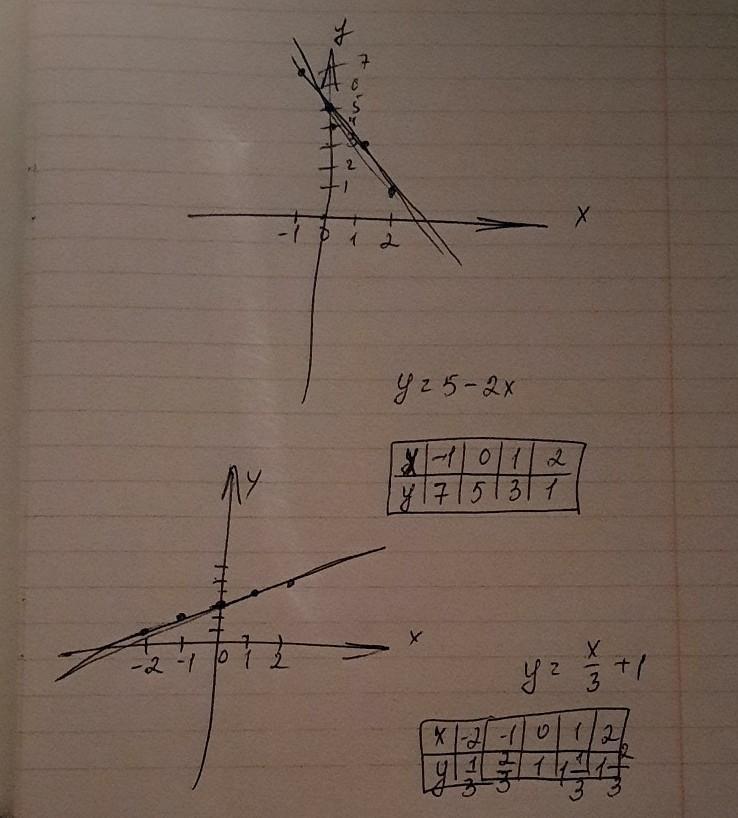 y
7
6
5
4
3
2
1
-1 0 1 2 x
y = 5 - 2x
x -1 0 1 2
y 7 5 3 1
y
-2 -1 0 1 2 x
y = x/3 + 1
x -2 -1 0 1 2
y 1/3 2/3 1 1 1/3 1 2/3